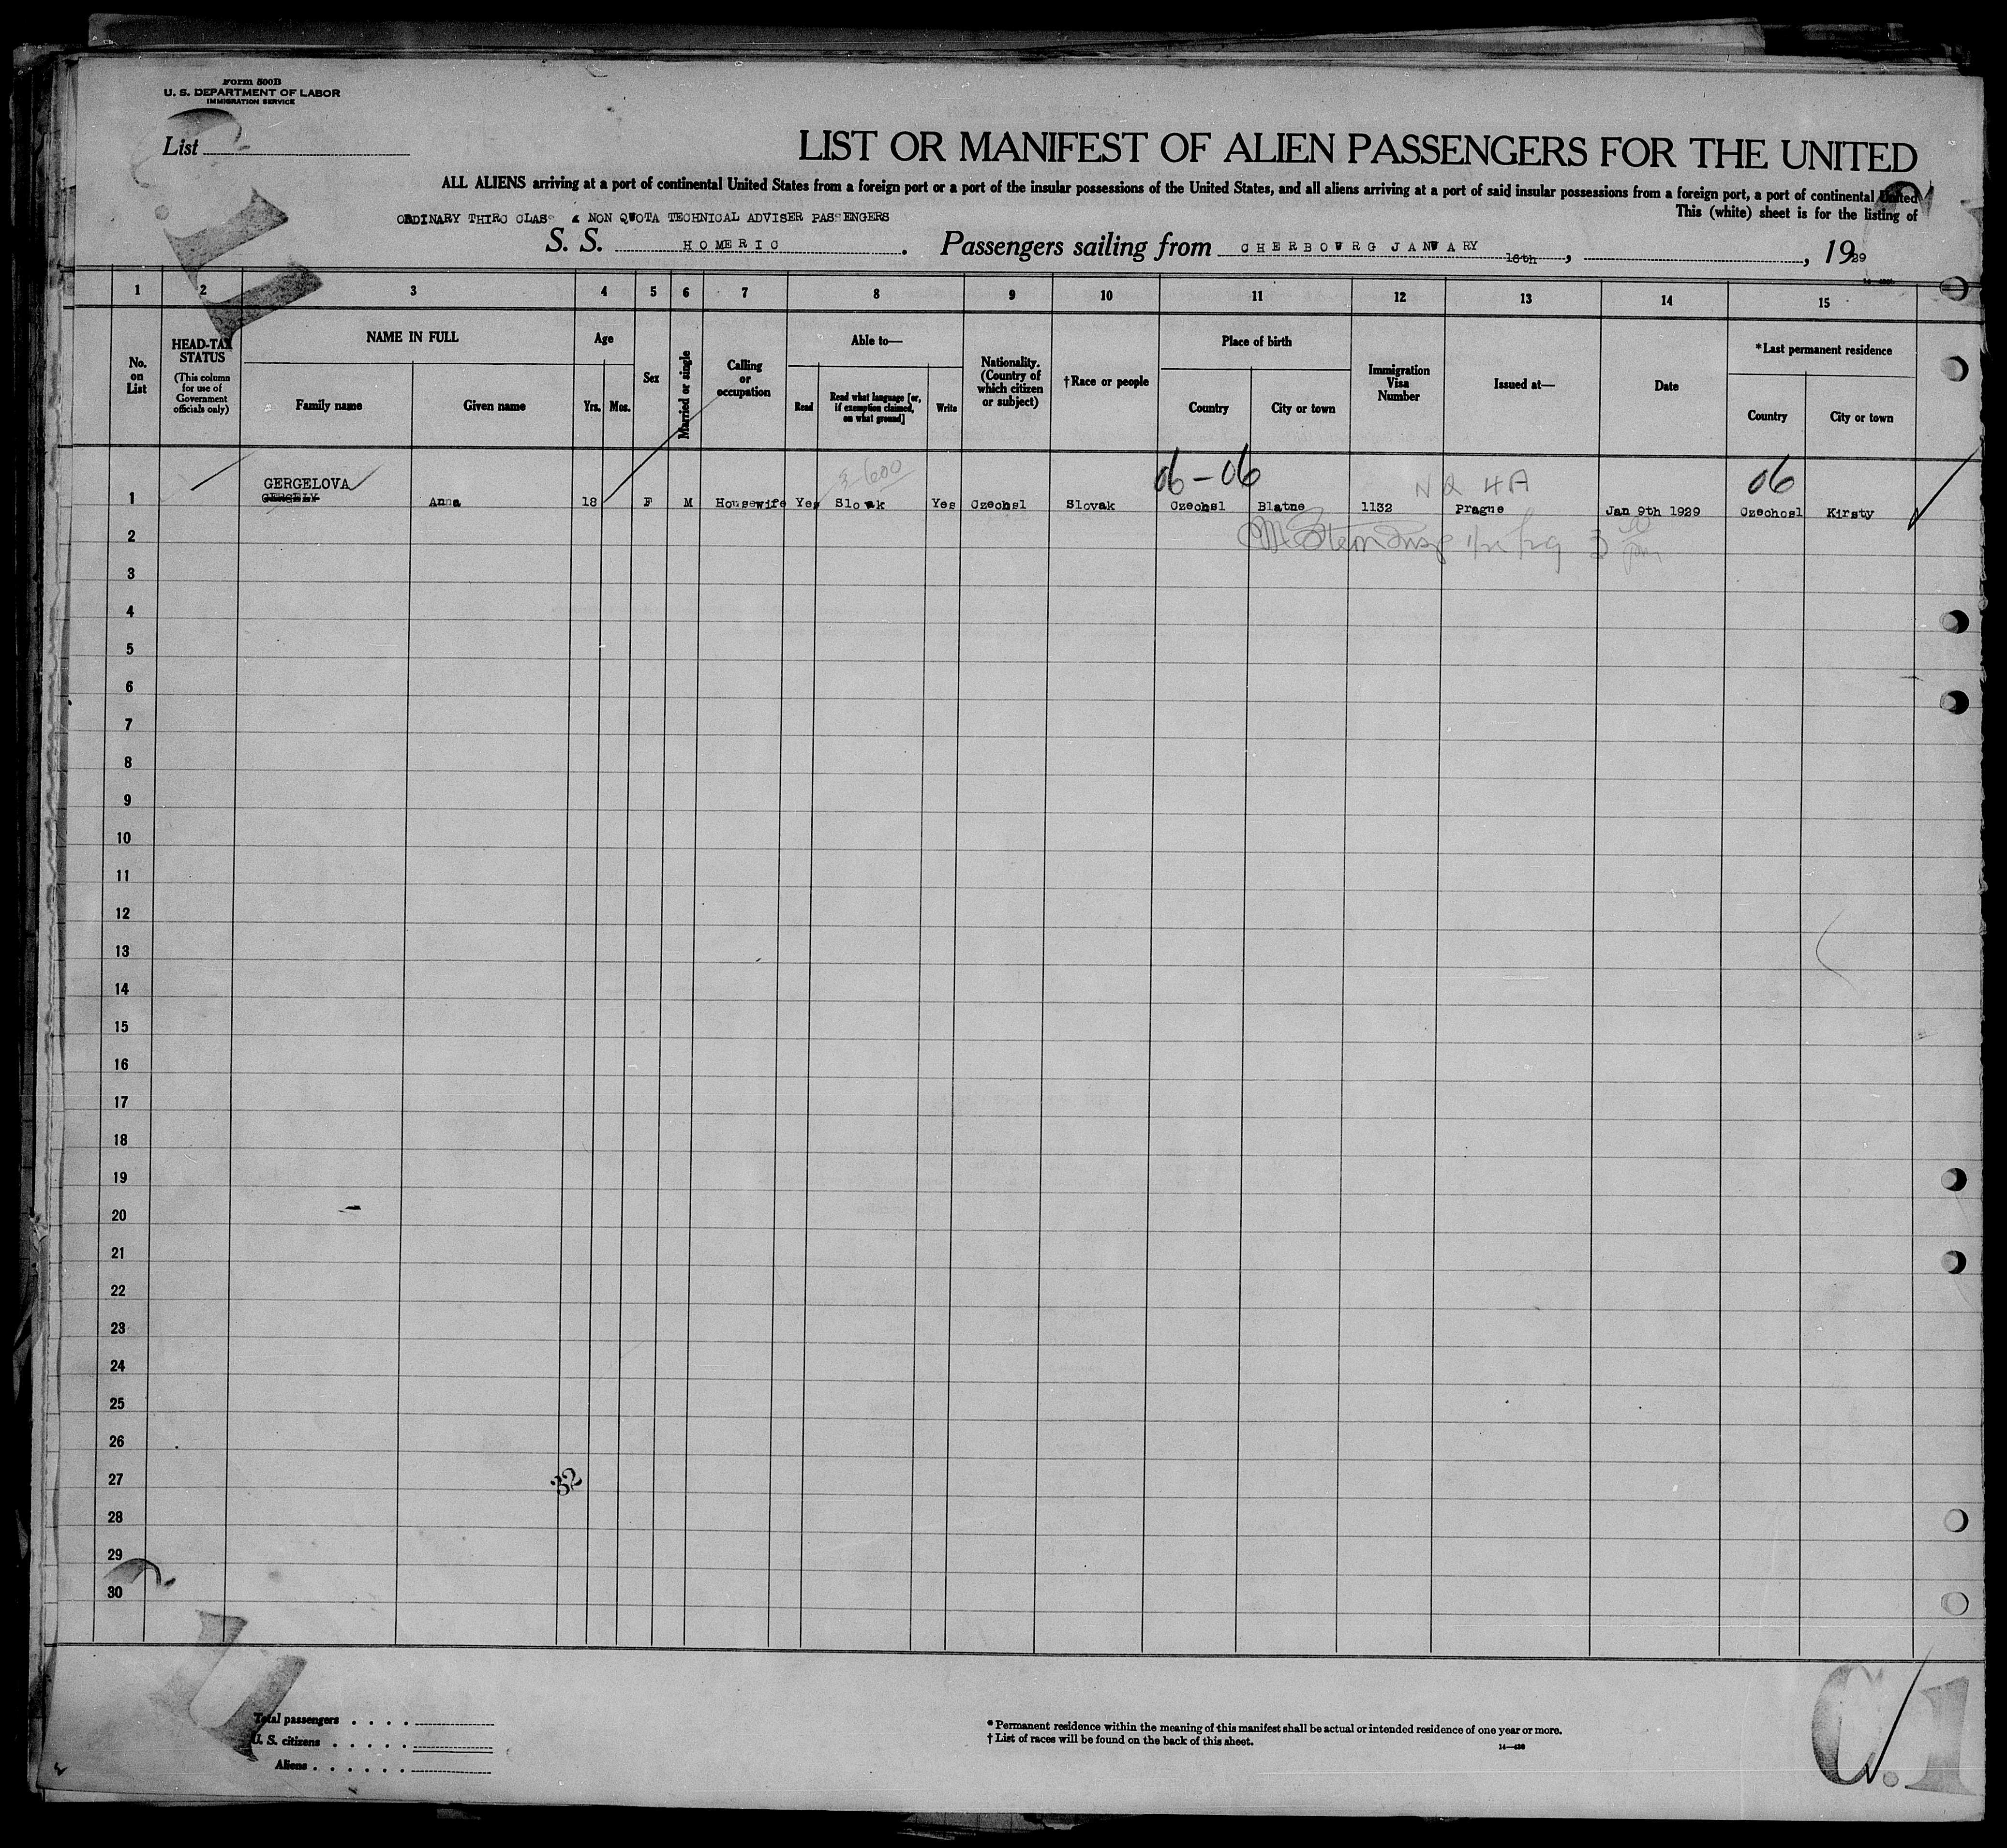 Form 500B
U. S. DEPARTMENT OF LABOR
IMMIGRATION SERVICE
List
LIST OR MANIFEST OF ALIEN PASSENGERS FOR THE UNITED
ALL ALIENS arriving at a port of continental United States from a foreign port or a port of the insular possessions of the United States, and all aliens arriving at a port of said insular possessions from a foreign port, a port of continental United
This (white) sheet is for the listing of
ORDINARY THIRD CLASS & NON QUOTA TECHNICAL ADVISER PASSENGERS
S. S. HOMERIC. Passengers sailing from CHERBOURG JANUARY 16th, , 1929
1 2 3 4 5 6 7 8 9 10 11 12 13 14 15
No. on List
HEAD-TAX STATUS (This column for use of Government officials only)
NAME IN FULL
Family name Given name
Age
Yrs. Mos.
Sex
Married or single
Calling or occupation
Able to—
Read
Read what language [or, if exemption claimed, on what ground]
Write
Nationality. (Country of which citizen or subject)
†Race or people
Place of birth
Country City or town
Immigration Visa Number
Issued at—
Date
*Last permanent residence
Country City or town
06-06 NQ 4A 06
GERGELOVA
1 GERGELY Anna 18 F M Housewife Yes Slovak Yes Czechsl Slovak Czechsl Blatne 1132 Prague Jan 9th 1929 Czechosl Kirsty
2
3
4
5
6
7
8
9
10
11
12
13
14
15
16
17
18
19
20
21
22
23
24
25
26
27
32
28
29
30
Total passengers . . . .
U. S. citizens . . . . .
Aliens . . . . . .
* Permanent residence within the meaning of this manifest shall be actual or intended residence of one year or more.
† List of races will be found on the back of this sheet.
C.1